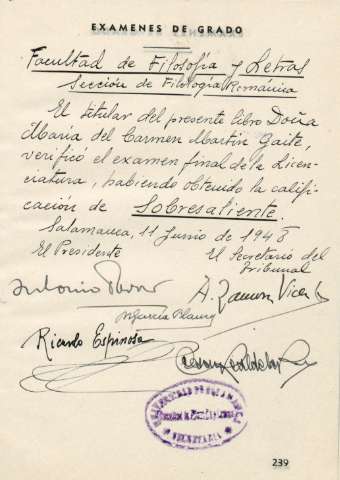 EXAMENES DE GRADO
Facultad de Filosofía y Letras
Sección de Filología Románica
El titular del presente libro Doña
María del Carmen Martín Gaite,
verificó el examen final de la Licen-
ciatura, habiendo obtenido la califi-
cación de Sobresaliente.
Salamanca, 11 Junio de 1948
El Presidente El Secretario del
Tribunal
Antonio Tovar A. Zamora Vicente
M García Blanco
Ricardo Espinosa
UNIVERSIDAD DE SALAMANCA
SECRETARIA
239